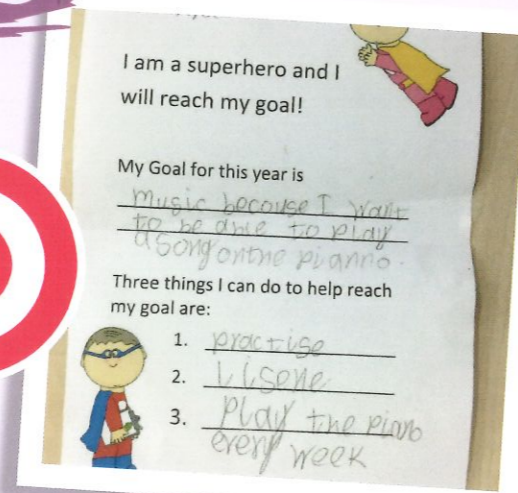 I am a superhero and I
will reach my goal!
My Goal for this year is
music because I want
to be able to play
a song on the pianno.
Three things I can do to help reach
my goal are:
1. practise
2. Lisene
3. Play the piano
every week